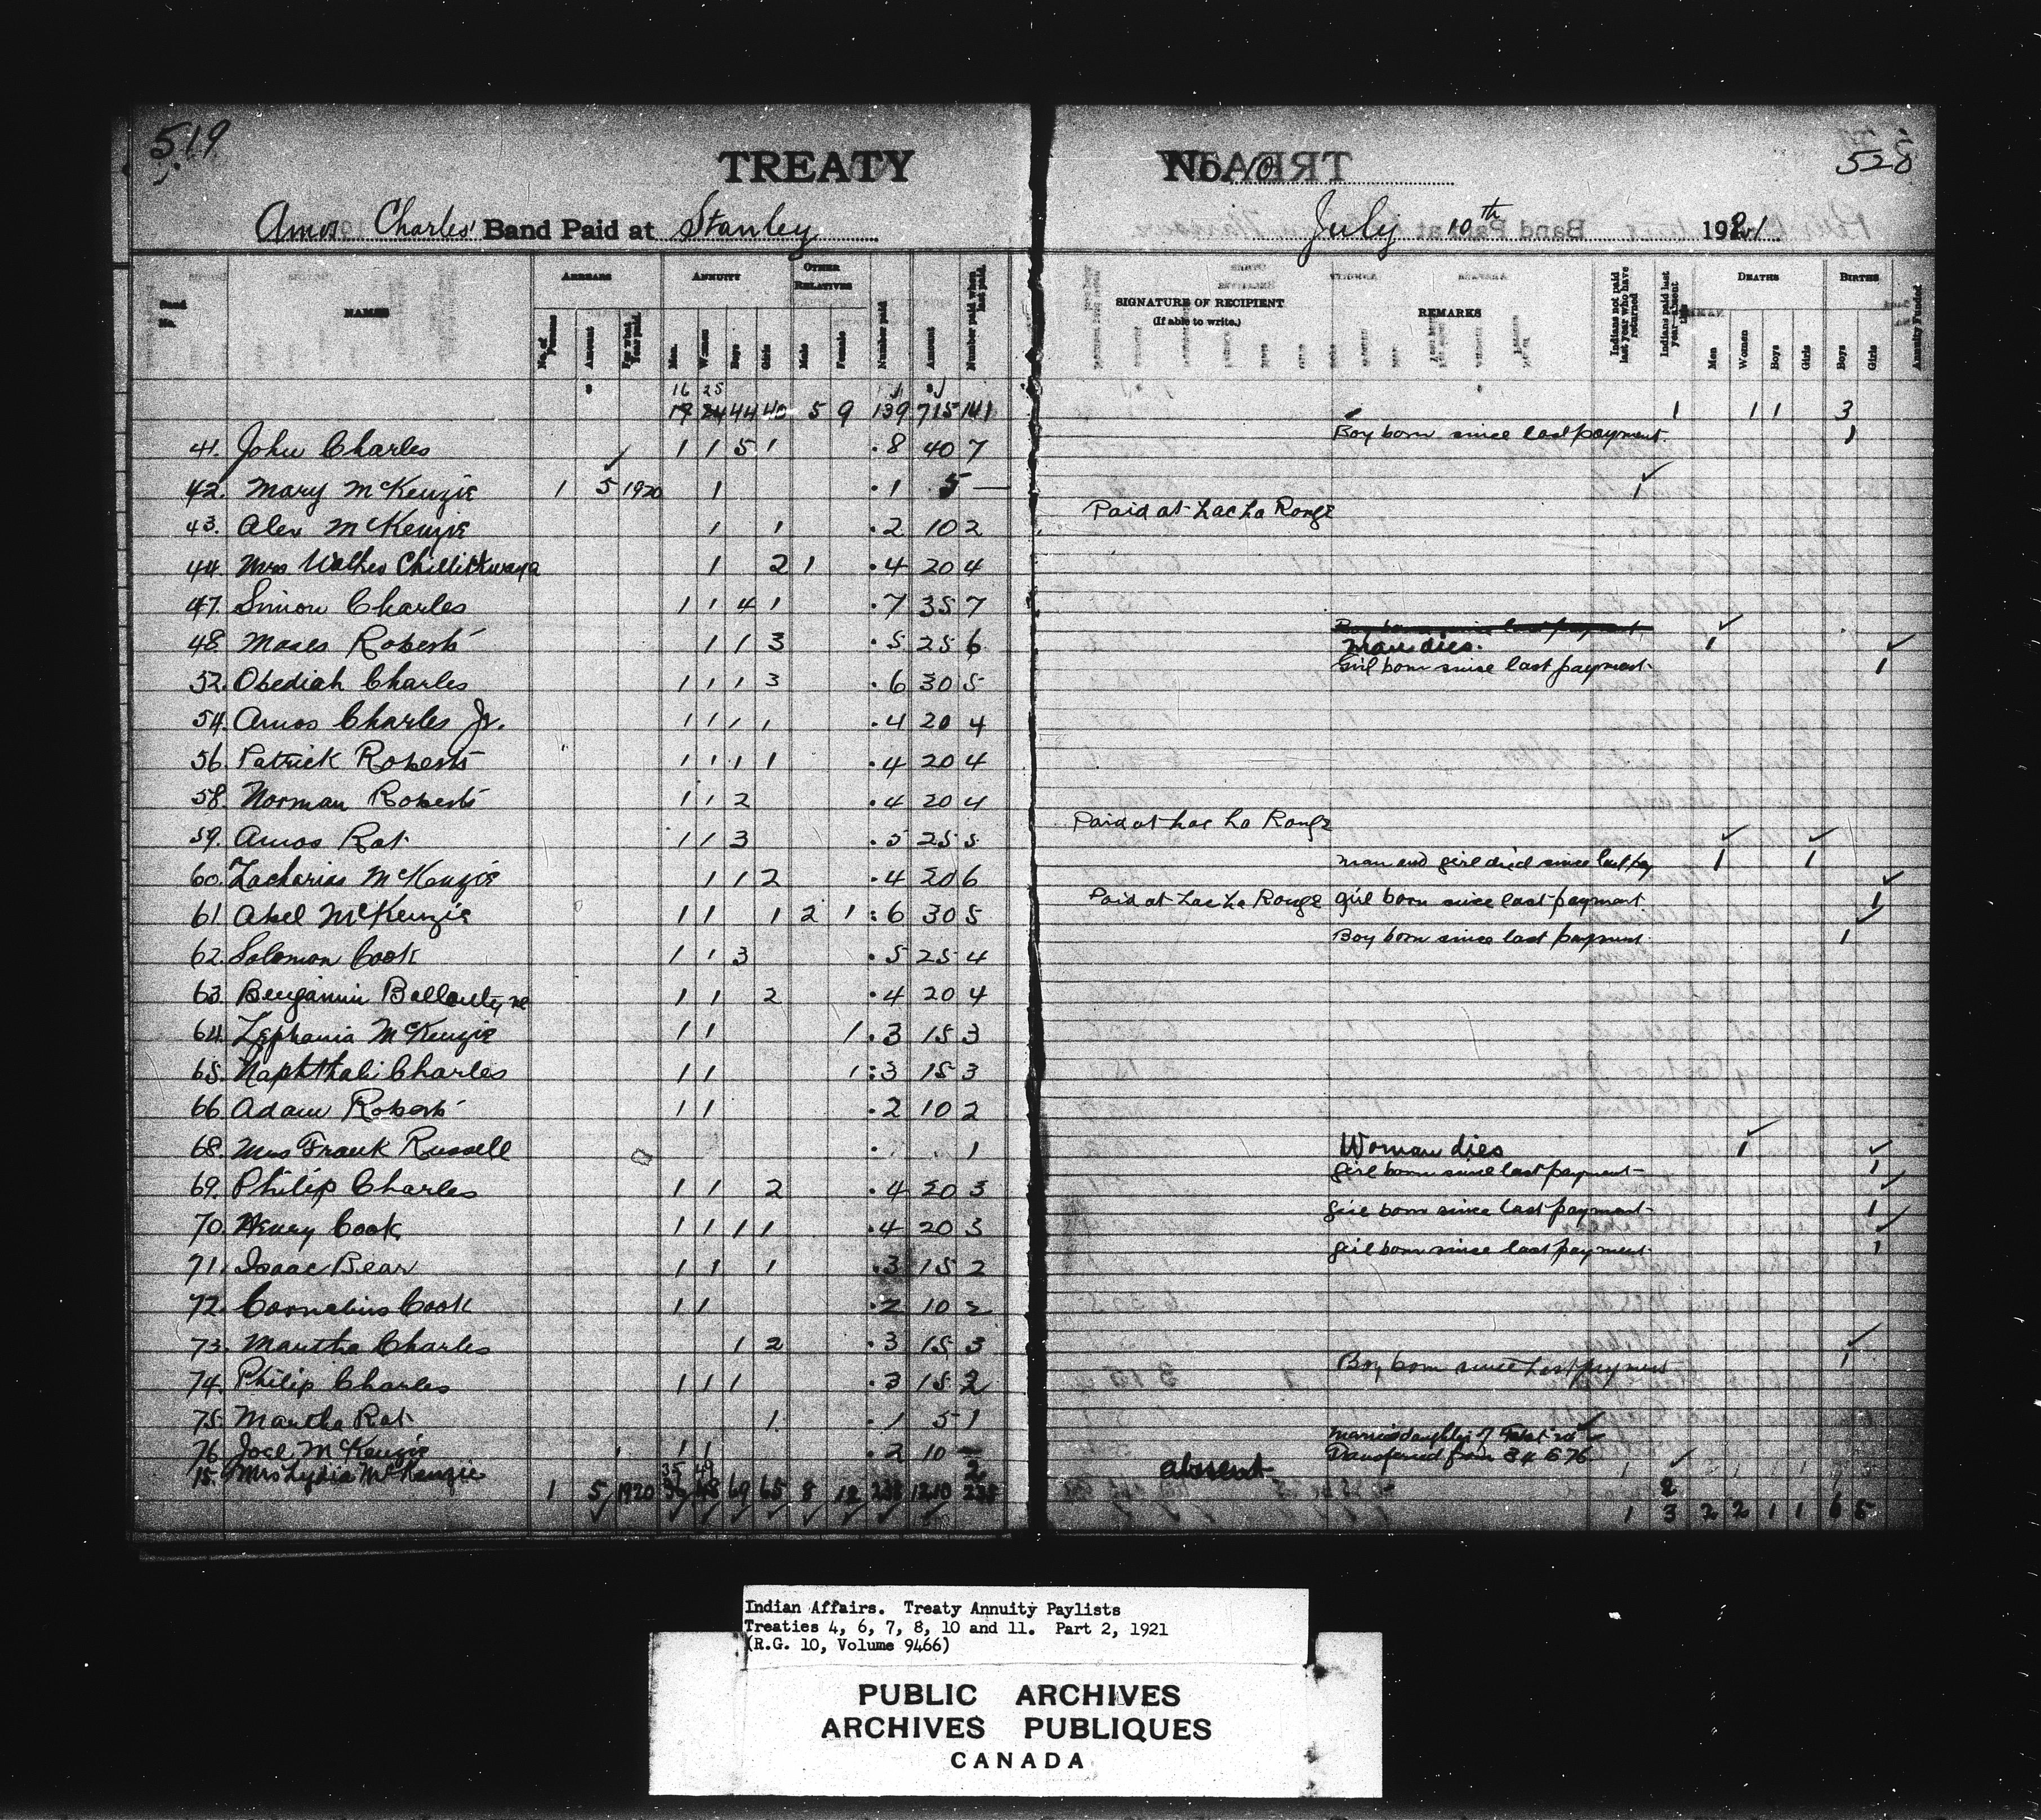 519
528
TREATY No. 10
Amos Charles' Band Paid at Stanley July 10th 1921
Band No. NAMES ARREARS ANNUITY OTHER RELATIVES Number paid Amount Number paid when last paid. SIGNATURE OF RECIPIENT (If able to write.) REMARKS Indians not paid last year who have returned Indians paid last year—absent this DEATHS BIRTHS Annuity Funded
No. of Persons Amount For what Year paid. Men. Women Boys Girls Male Female Men Women Boys Girls Boys Girls
16 25
19 24 44 40 5 9 139 715 141 1 1 1 3
41. John Charles 1 1 5 1 8 40 7 Boy born since last payment. 1
42. Mary McKenzie 1 5 1920 1 1 5 — 1
43. Alex McKenzie 1 1 2 10 2 Paid at Lac La Ronge
44. Mrs 1 2 1 4 20 4
47. Simon Charles 1 1 4 1 7 35 7
48. Moses Roberts 1 1 3 5 25 6 Boy born since last payment. Man dies. 1
52. Obediah Charles 1 1 1 3 6 30 5 Girl born since last payment. 1
54. Amos Charles Jr. 1 1 1 1 4 20 4
56. Patrick Roberts 1 1 1 1 4 20 4
58. Norman Roberts 1 1 2 4 20 4
59. Amos Rat 1 1 3 5 25 5 Paid at Lac La Ronge
60. Zacharias McKenzie 1 1 2 4 20 6 Man and girl died since last pay 1 1
61. Abel McKenzie 1 1 1 2 1 6 30 5 Paid at Lac La Ronge girl born since last payment. 1
62. Solomon Cook 1 1 3 5 25 4 Boy born since last payment 1
63. Benjamin Ballantyne 1 1 2 4 20 4
64. Zephania McKenzie 1 1 1 3 15 3
65. Naphthali Charles 1 1 1 3 15 3
66. Adam Roberts 1 1 2 10 2
68. Mrs Frank Russell 1 Woman dies 1
69. Philip Charles 1 1 2 4 20 3 girl born since last payment 1
70. Henry Cook 1 1 1 1 4 20 3 girl born since last payment 1
71. Isaac Bear 1 1 1 3 15 2 girl born since last payment 1
72. Cornelius Cook 1 1 2 10 2
73. Martha Charles 1 2 3 15 3
74. Philip Charles 1 1 1 3 15 2 Boy born since last payment 1
75. Martha Rat 1 1 5 1
76. Joel McKenzie 1 1 2 10 — Marries daughter of
Transferred from
15. Mrs Lydia McKenzie 2 absent
35 49
1 5 1920 36 48 69 65 8 12 238 1210 238 1 3 2 2 1 1 6 5
Indian Affairs. Treaty Annuity Paylists
Treaties 4, 6, 7, 8, 10 and 11. Part 2, 1921
(R.G. 10, Volume 9466)
PUBLIC ARCHIVES
ARCHIVES PUBLIQUES
CANADA